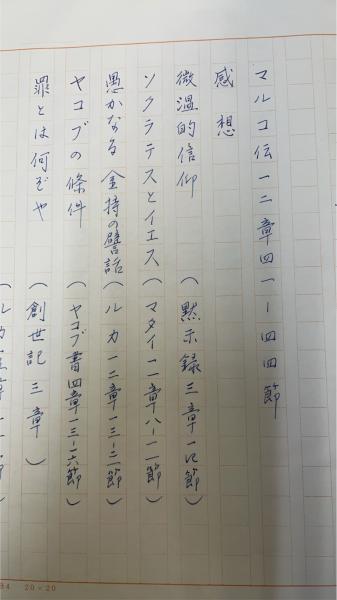 マルコ伝一二章四一ー四四節
感想
微温的信仰 (黙示録三章一五節)
ソクラテスとイエス (マタイ二一章八ー一一節)
愚かなる金持の譬話 (ルカ一二章一三ー二一節)
ヤコブの條件 (ヤコブ書四章一三ー一六節)
罪とは何ぞや (創世記三章)
20×20